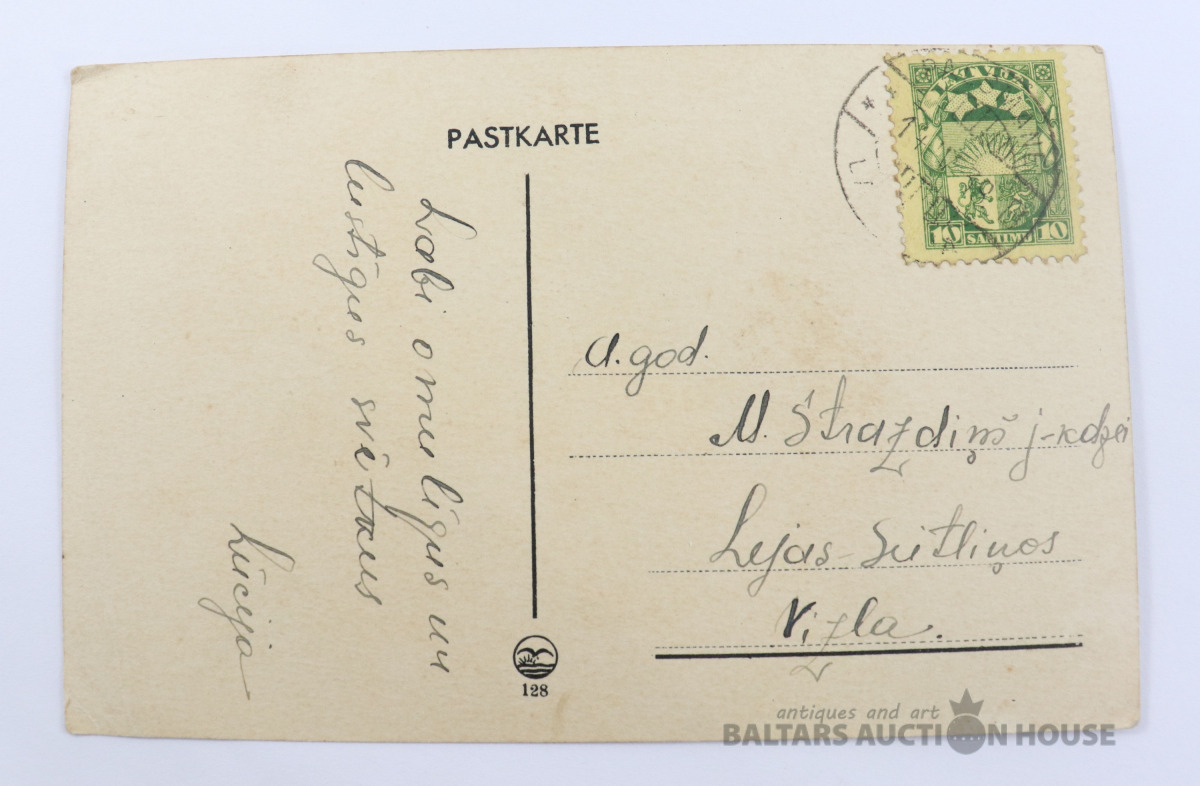 PASTKARTE
Labi omulīgus un
lustīgus svētkus
Lūcija
LATVIJA
10 SANTIMU 10
A. god.
M. Strazdiņš j-kdzei
Lejas-Suitliņos
Vizla.
128
antiques and art
BALTARS AUCTION HOUSE